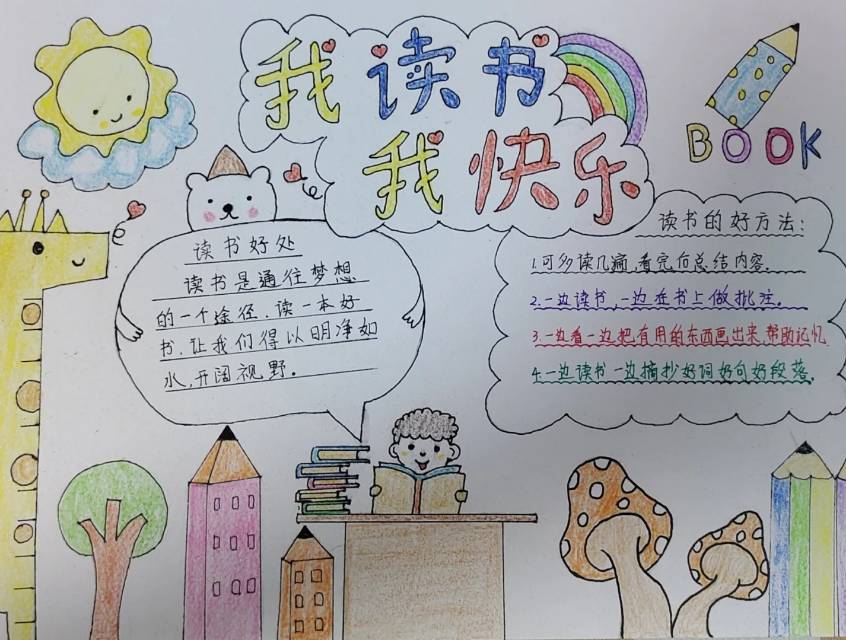 我读书
我快乐
BOOK
读书好处
读书是通往梦想
的一个途径.读一本好
书.让我们得以明净如
水,开阔视野。
读书的好方法:
1.可多读几遍,看完后总结内容.
2.一边读书,一边在书上做批注。
3.一边看一边把有用的东西画出来,帮助记忆
4.一边读书一边摘抄好词好句好段落。